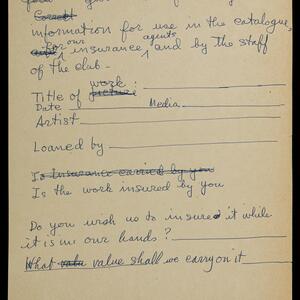 Correct
information for use in the catalogue,
for our insurance agents and by the staff
of the club.
Title of picture work:
Date Media
Artist
Loaned by
Is Insurance carried by you
Is the work insured by you
Do you wish us to insured it while
it is in our hands?
What valu value shall we carry on it